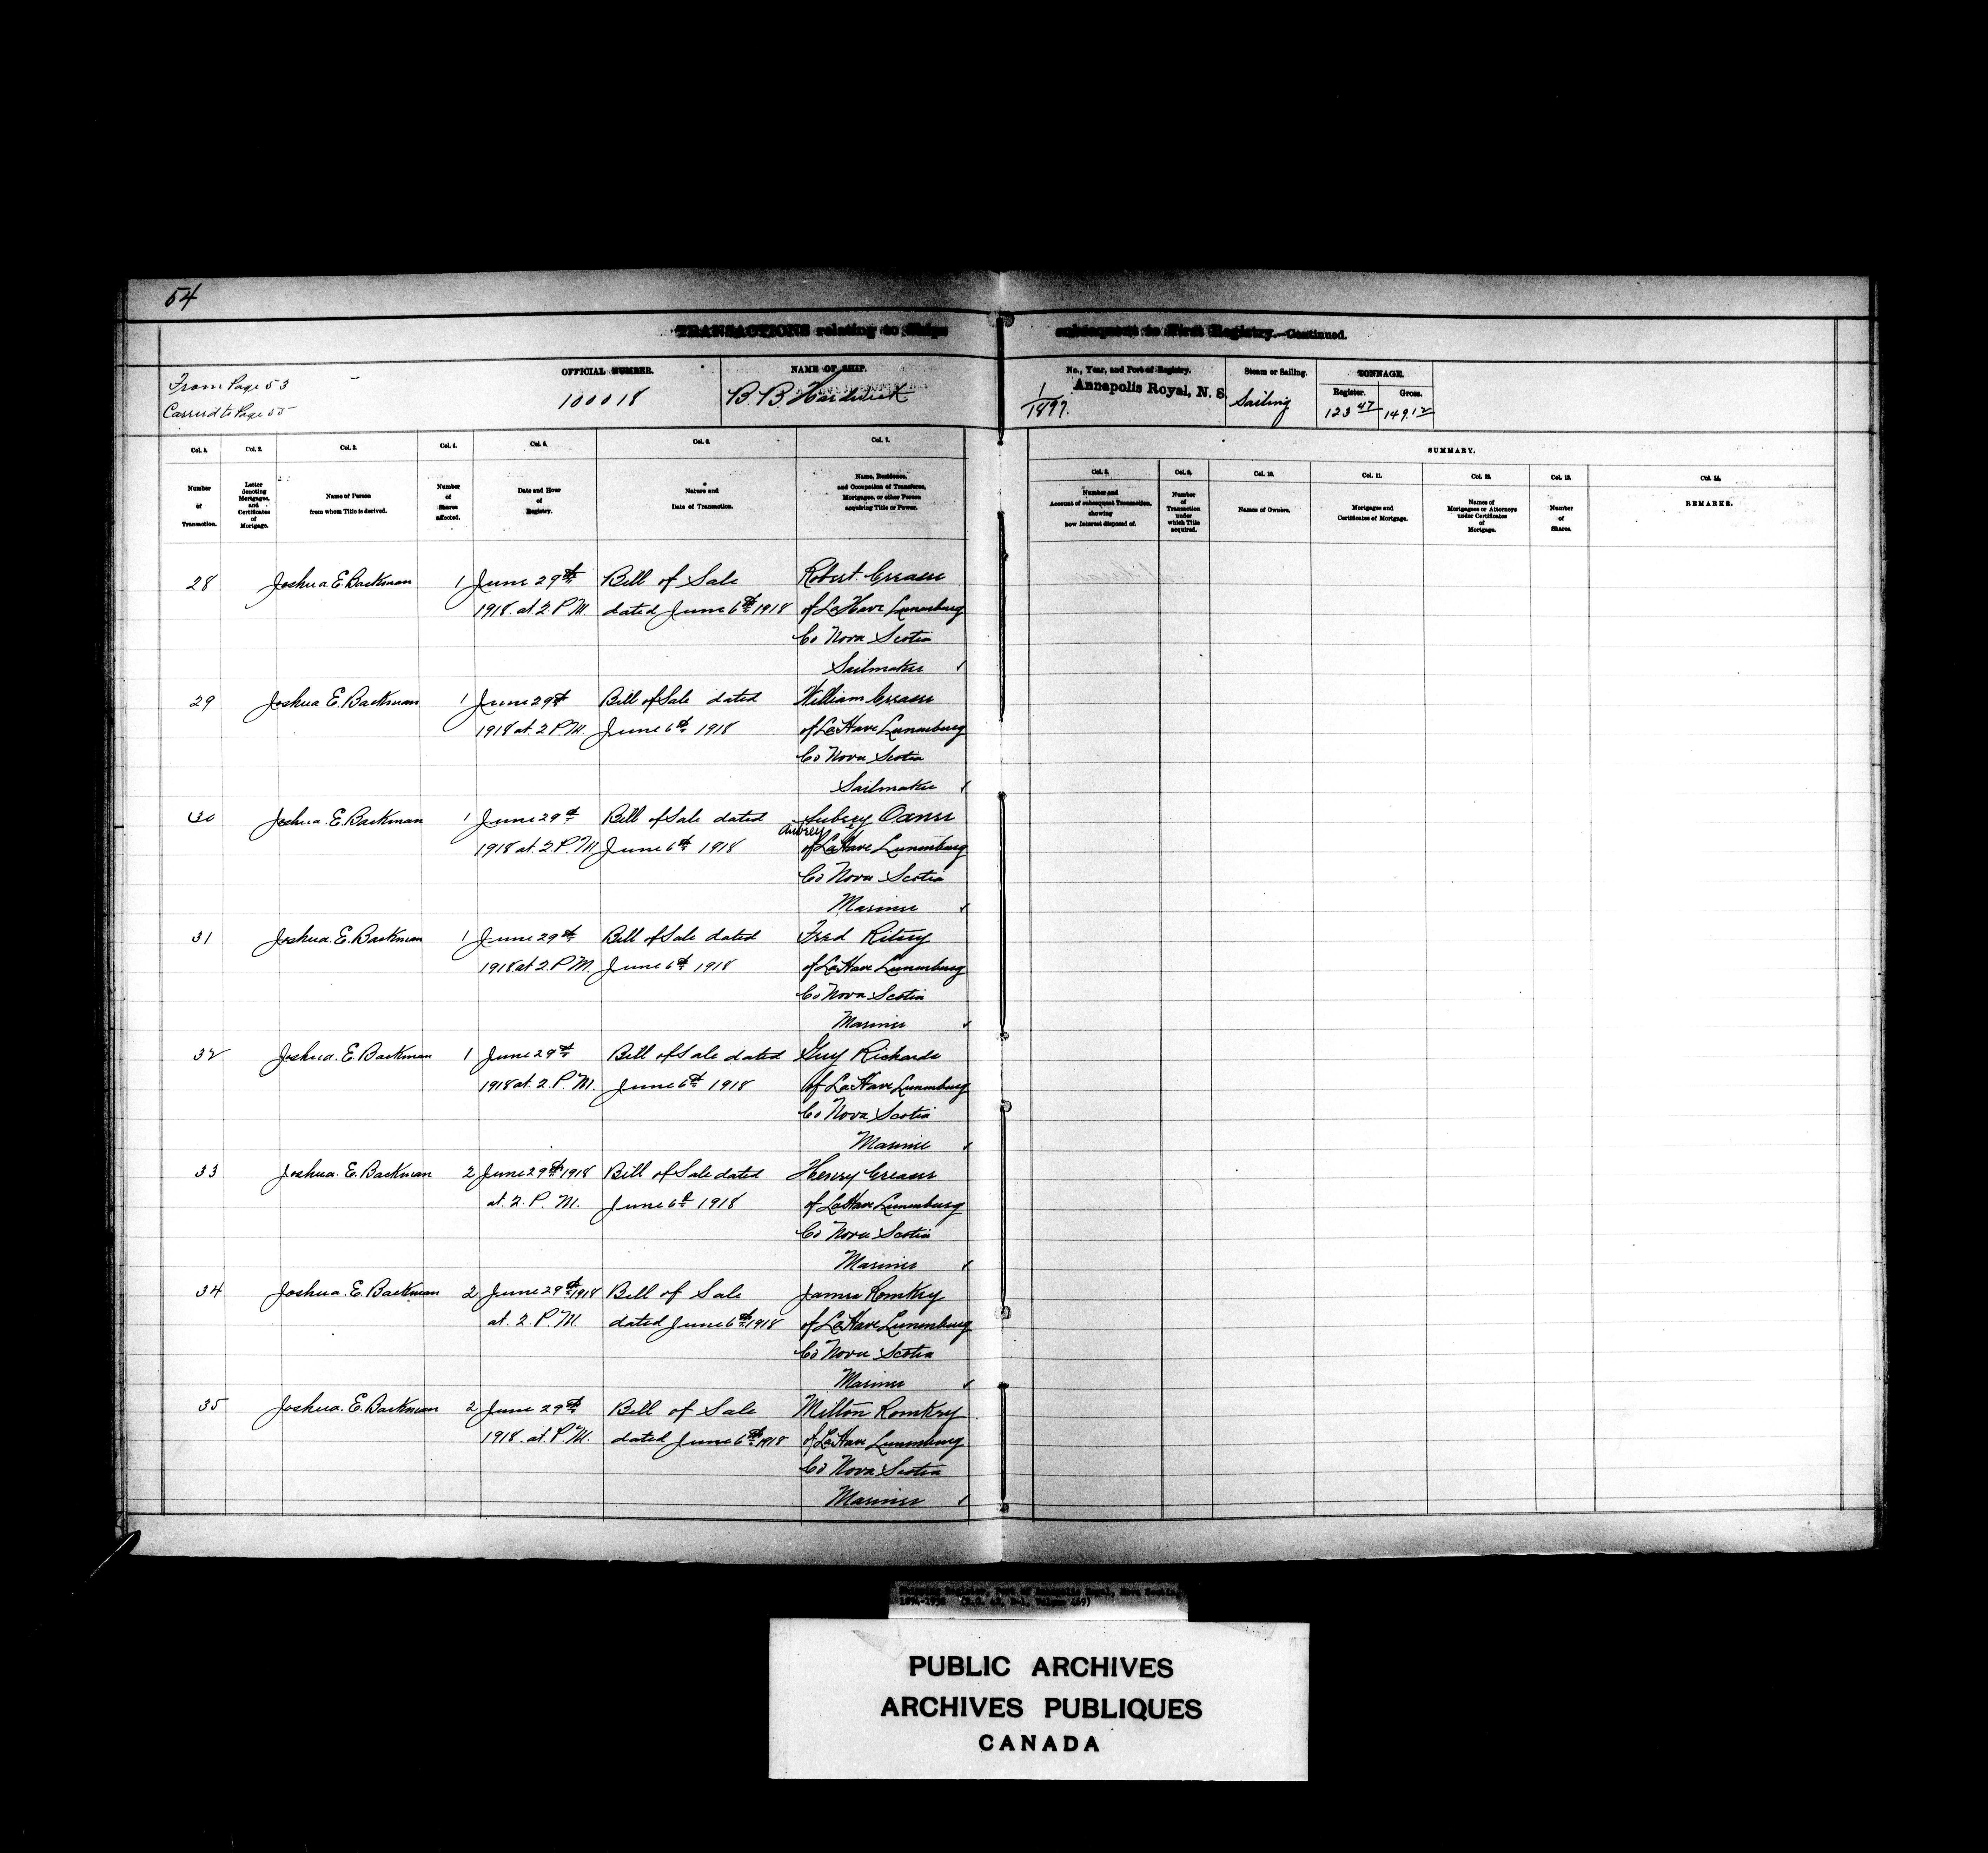 54
TRANSACTIONS relating to Ships subsequent to First Registry.—Continued.
From Page 53
Carried to Page 55
OFFICIAL NUMBER.
100018
NAME OF SHIP.
B. B. Hardwick
No., Year, and Port of Registry.
1/1897. Annapolis Royal, N. S.
Steam or Sailing.
Sailing
TONNAGE.
Register. Gross.
123 47 149.12
Col. 1. Col. 2. Col. 3. Col. 4. Col. 5. Col. 6. Col. 7.
Number of Transaction.
Letter denoting Mortgages, and Certificates of Mortgage.
Name of Person from whom Title is derived.
Number of Shares affected.
Date and Hour of Registry.
Nature and Date of Transaction.
Name, Residence, and Occupation of Transferee, Mortgagee, or other Person acquiring Title or Power.
SUMMARY.
Col. 8. Col. 9. Col. 10. Col. 11. Col. 12. Col. 13. Col. 14.
Number and Account of subsequent Transaction, showing how Interest disposed of.
Number of Transaction under which Title acquired.
Names of Owners.
Mortgages and Certificates of Mortgage.
Names of Mortgagees or Attorneys under Certificates of Mortgage.
Number of Shares.
REMARKS.
28 Joshua E. Backman 1 June 29th Bill of Sale Robert Creaser
1918. at 2. P.M. dated June 6th 1918 of LaHave Lunenburg
Co Nova Scotia
Sailmaker
29 Joshua E. Backman 1 June 29th Bill of Sale dated William Creaser
1918 at 2 P.M. June 6th 1918 of LaHave Lunenburg
Co Nova Scotia
Sailmaker
30 Joshua. E. Backman 1 June 29th Bill of Sale dated Aubrey Oxner
Aubrey
1918 at. 2. P.M June 6th 1918 of LaHave Lunenburg
Co Nova Scotia
Mariner
31 Joshua. E. Backman 1 June 29th Bill of Sale dated Fred Ritcey
1918 at 2. P M. June 6th 1918 of LaHave Lunenburg
Co Nova Scotia
Mariner
32 Joshua. E. Backman 1 June 29th Bill of Sale dated Guy Richards
1918 at. 2. P. M. June 6th 1918 of LaHave Lunenburg
Co Nova Scotia
Mariner
33 Joshua. E. Backman 2 June 29th 1918 Bill of Sale dated Henry Creaser
at. 2. P. M. June 6th 1918 of LaHave Lunenburg
Co Nova Scotia
Mariner
34 Joshua. E. Backman 2 June 29th 1918 Bill of Sale James Romkey
at. 2. P. M. dated June 6th 1918 of LaHave Lunenburg
Co Nova Scotia
Mariner
35 Joshua. E. Backman 2 June 29th Bill of Sale Milton Romkey
1918. at. P. M. dated June 6th 1918 of LaHave Lunenburg
Co Nova Scotia
Mariner
Shipping Register, Port of Annapolis Royal, Nova Scotia,
PUBLIC ARCHIVES
ARCHIVES PUBLIQUES
CANADA